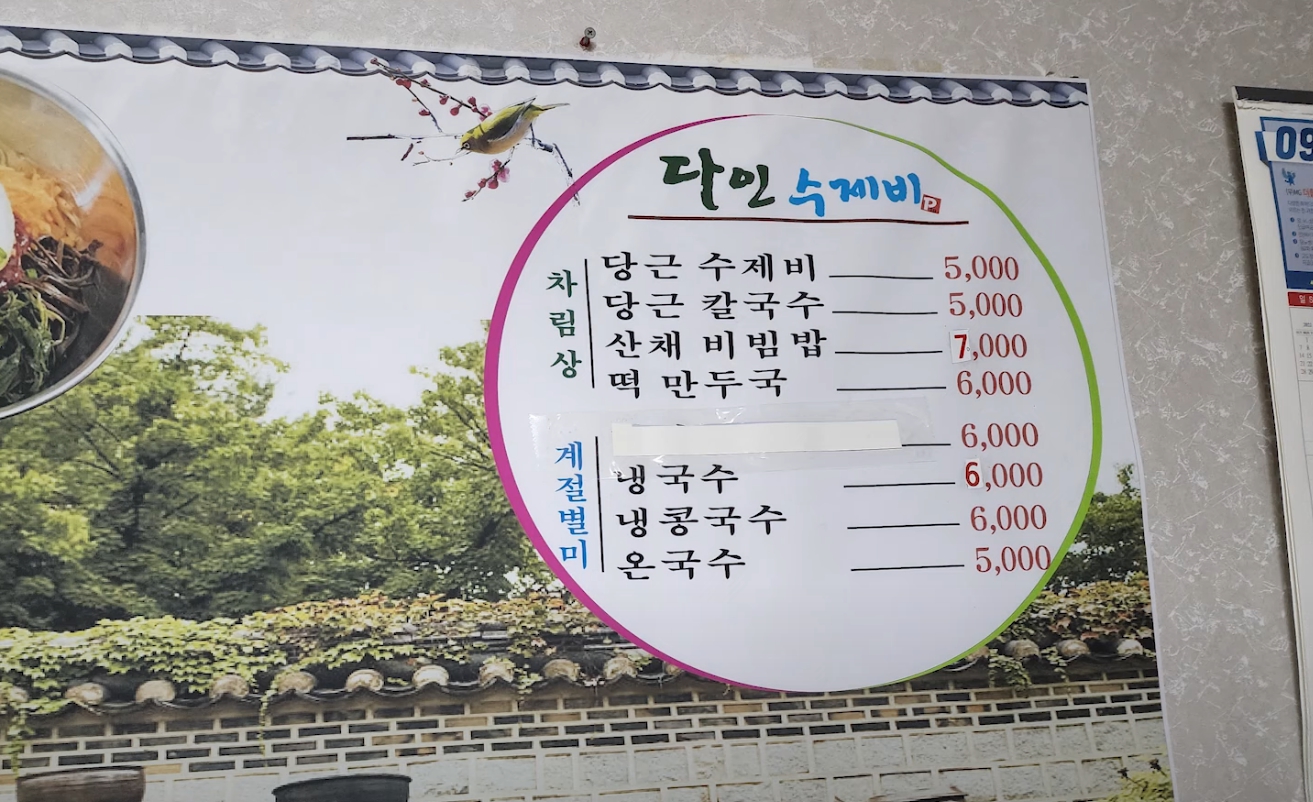 다인 수제비
차림상
당근 수제비 5,000
당근 칼국수 5,000
산채 비빔밥 7,000
떡 만두국 6,000
계절별미
6,000
냉국수 6,000
냉콩국수 6,000
온국수 5,000
09